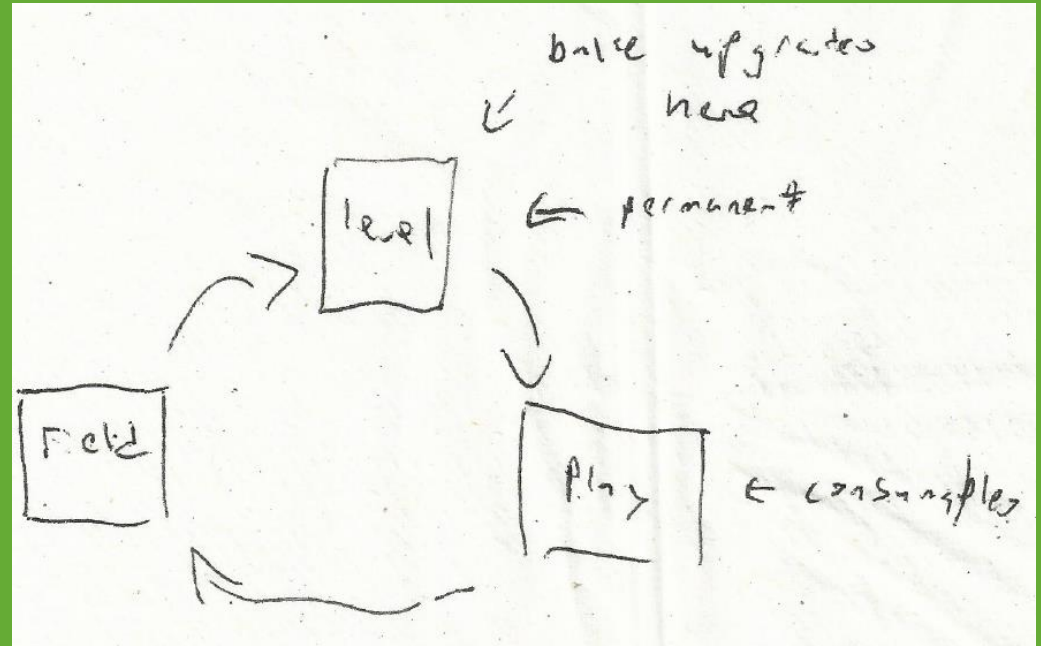 base upgrades
here
level
permanent
Field
Play
consumables